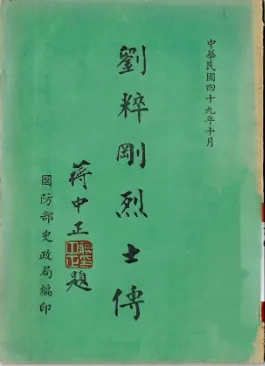 中華民國四十九年十月
劉粹剛烈士傳
蔣中正題
國防部史政局編印